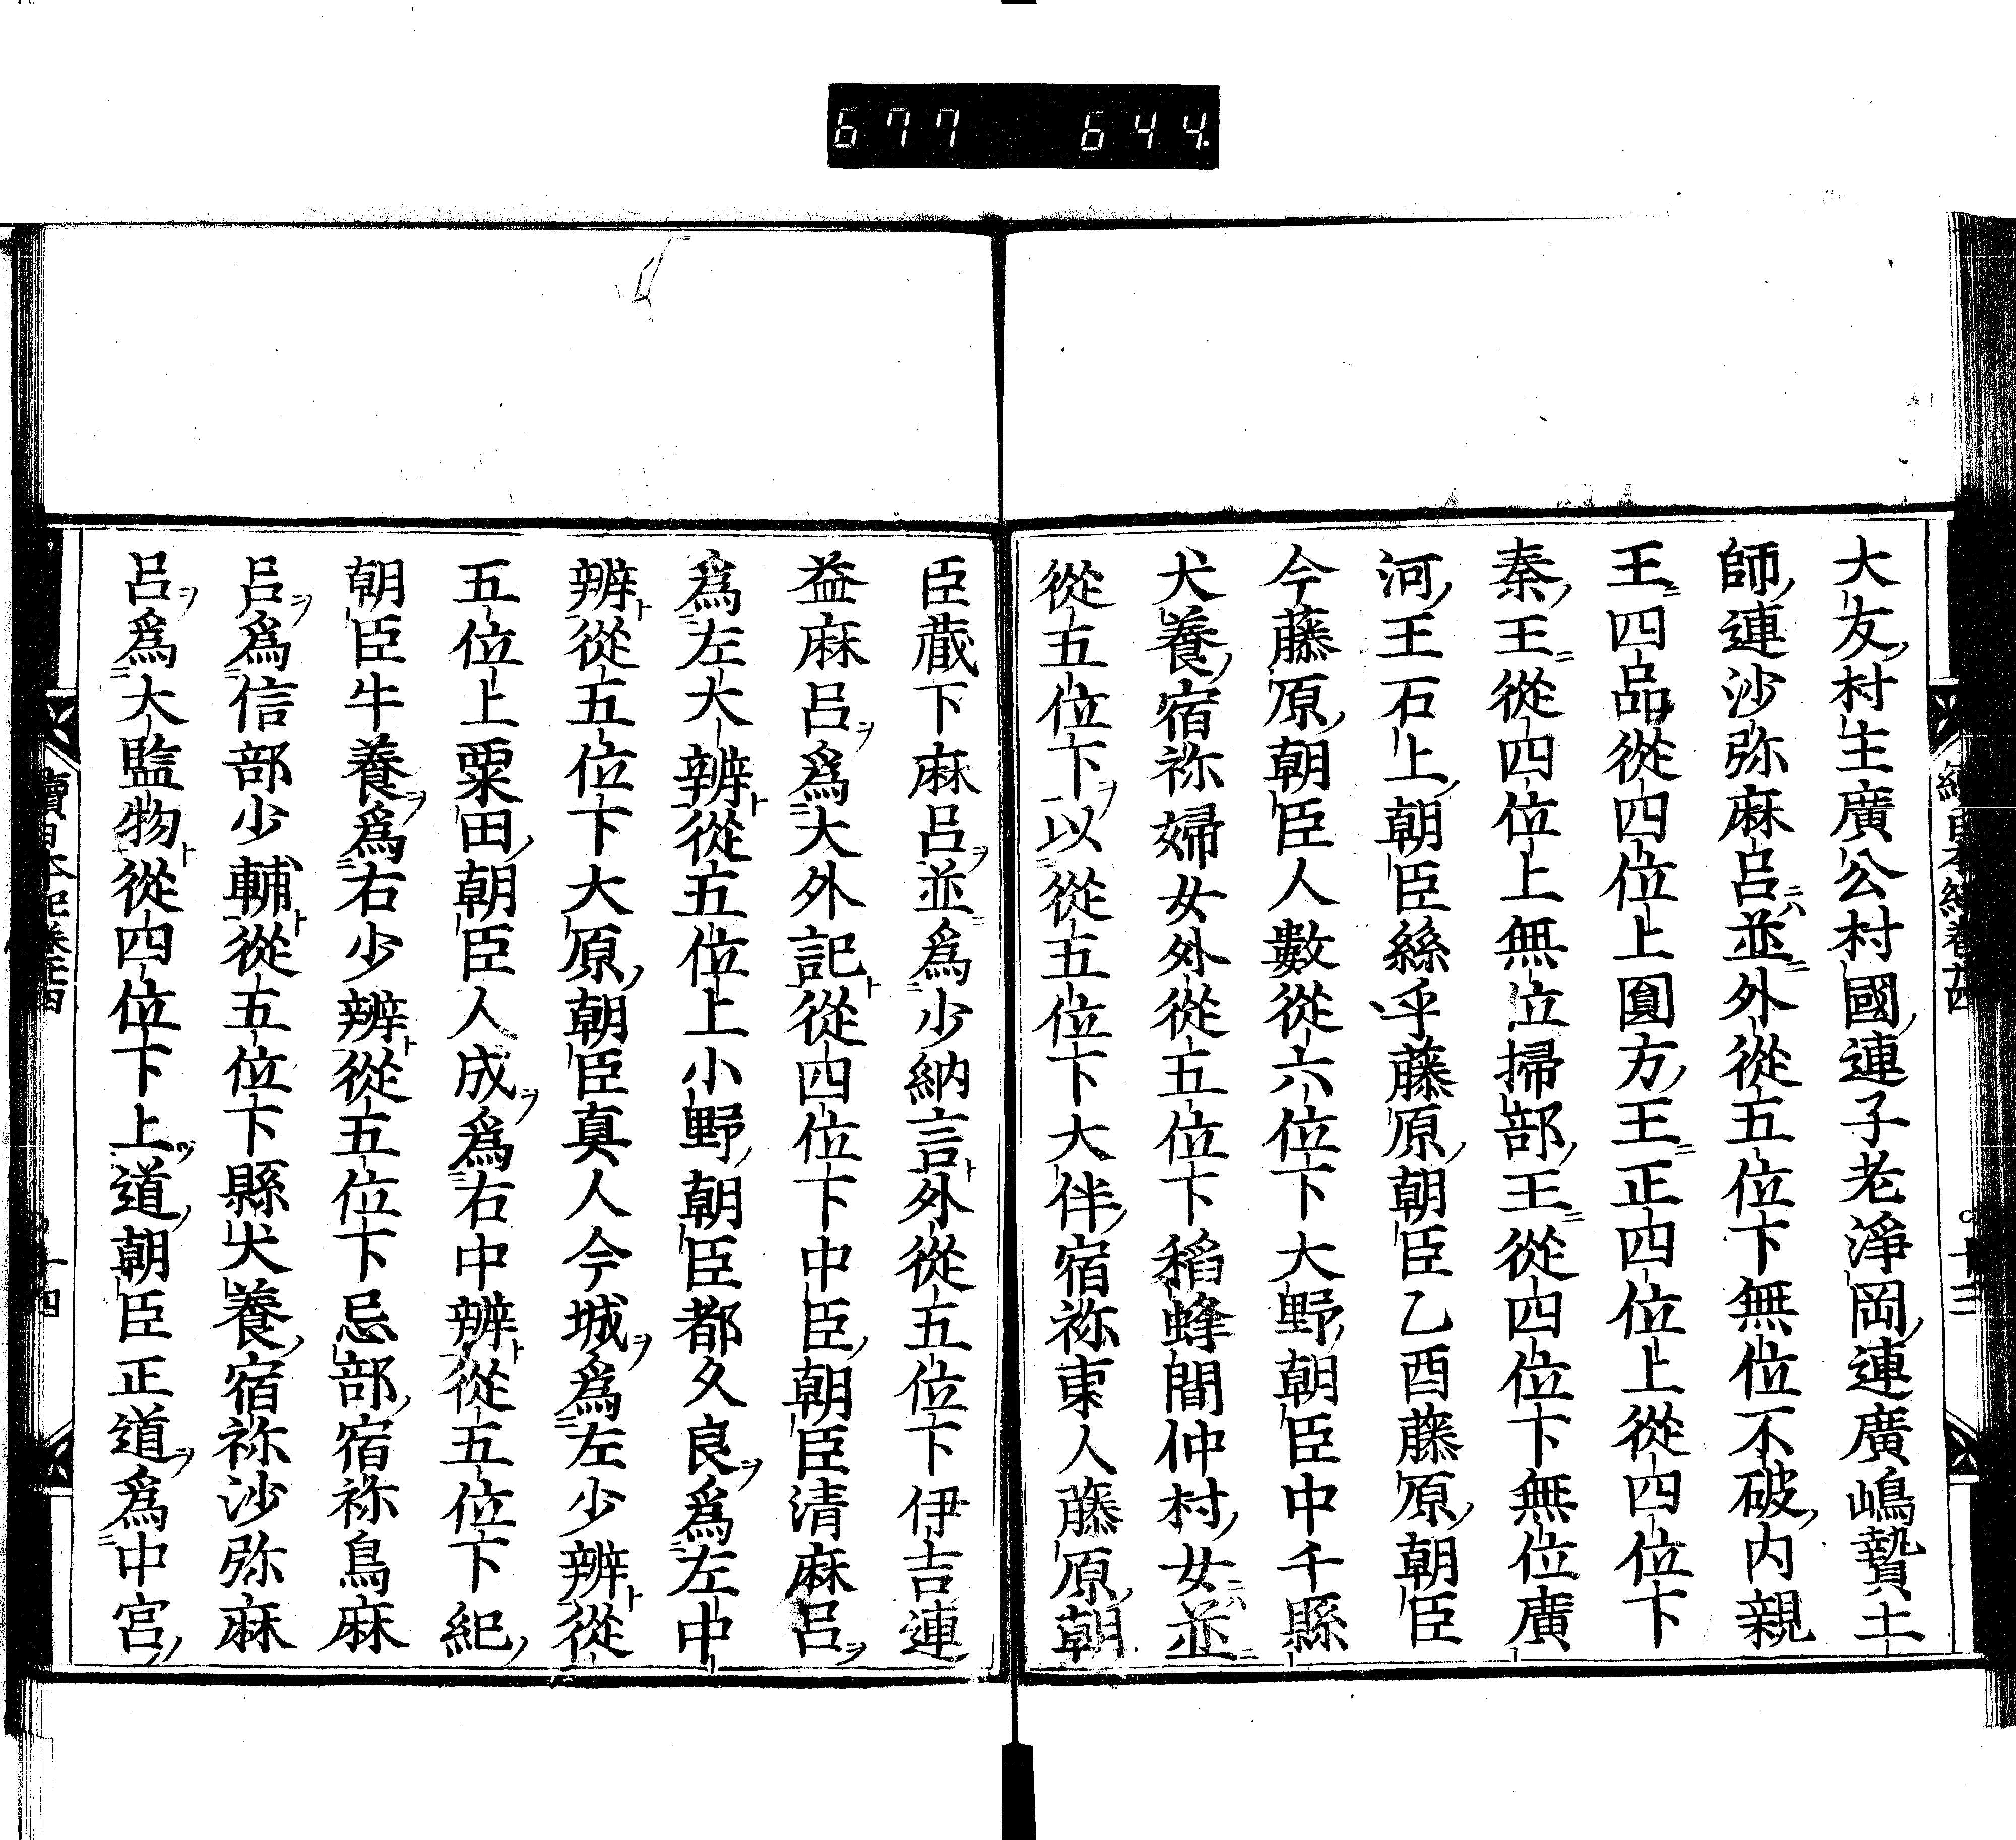 677 644
大友村主廣公村國連子老淨岡連廣嶋贄土
師連沙弥麻呂並外從五位下無位不破内親
王四品從四位上圓方王正四位上從四位下
秦王從四位上無位掃部王從四位下無位廣
河王石上朝臣絲乎藤原朝臣乙酉藤原朝臣
今藤原朝臣人數從六位下大野朝臣中千縣
犬養宿祢婦女外從五位下稻蜂間仲村女並
從五位下以從五位下大伴宿祢東人藤原朝
臣蔵下麻呂並爲少納言外從五位下伊吉連
益麻呂爲大外記從四位下中臣朝臣清麻呂
爲左大辨從五位上小野朝臣都久良爲左中
辨從五位下大原朝臣真人今城爲左少辨從
五位上粟田朝臣人成爲右中辨從五位下紀
朝臣牛養爲右少辨從五位下忌部宿祢鳥麻
呂爲信部少輔從五位下縣犬養宿祢沙弥麻
呂爲大監物從四位下上道朝臣正道爲中宮